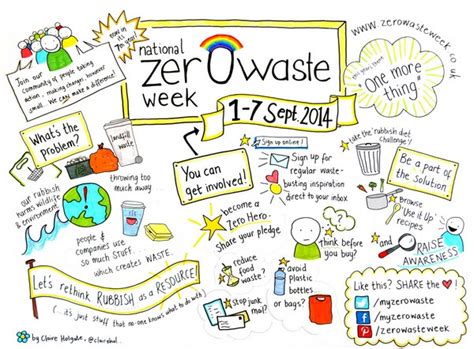 Now in its
7th year!
national
zero waste
week
1-7 Sept. 2014
www.zerowasteweek.co.uk
Join our
community of people taking
action, making changes, however
small. We can make a difference!
this year's theme:
One more
thing
What's the
problem?
landfill
waste
throwing too
much away
our rubbish
harms wildlife
& environment
people &
companies use
so much STUFF.
which creates WASTE.
You can
get involved!
Sign up online!
Sign up for
regular waste-
busting inspiration
direct to your inbox
become a
Zero Hero.
Share your pledge
Think before
you buy!
reduce
food
waste
avoid
plastic
bottles
or bags?
stop junk
mail!
take the 'rubbish diet
challenge'!
Be a part of
the solution
Browse
'Use it Up'
recipes
and
RAISE
AWARENESS
Let's rethink RUBBISH as a RESOURCE!
(...it's just stuff that no-one knows what to do with)
Like this? SHARE the
/myzerowaste
/myzerowaste
/zerowasteweek
by Claire Holgate,